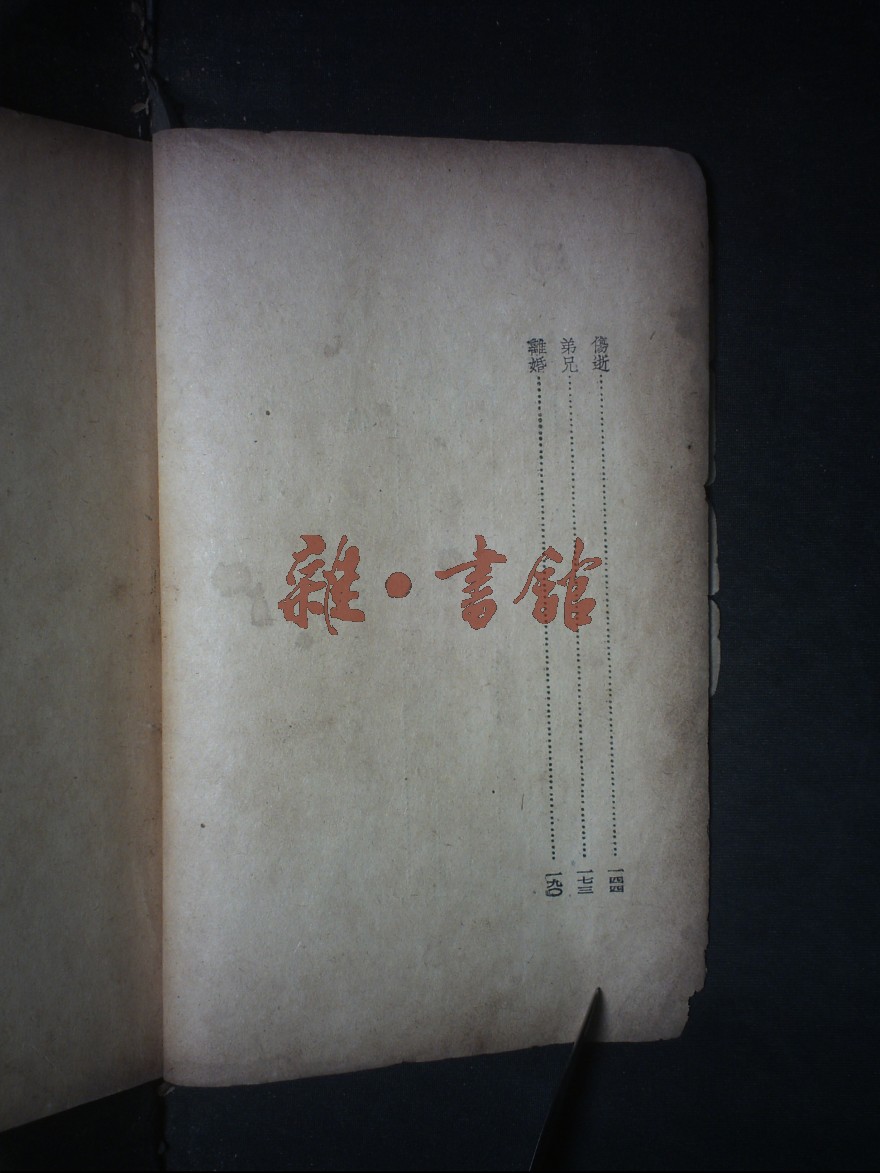 傷逝……………………一四四
弟兄……………………一七三
離婚……………………一九〇
雜·書館